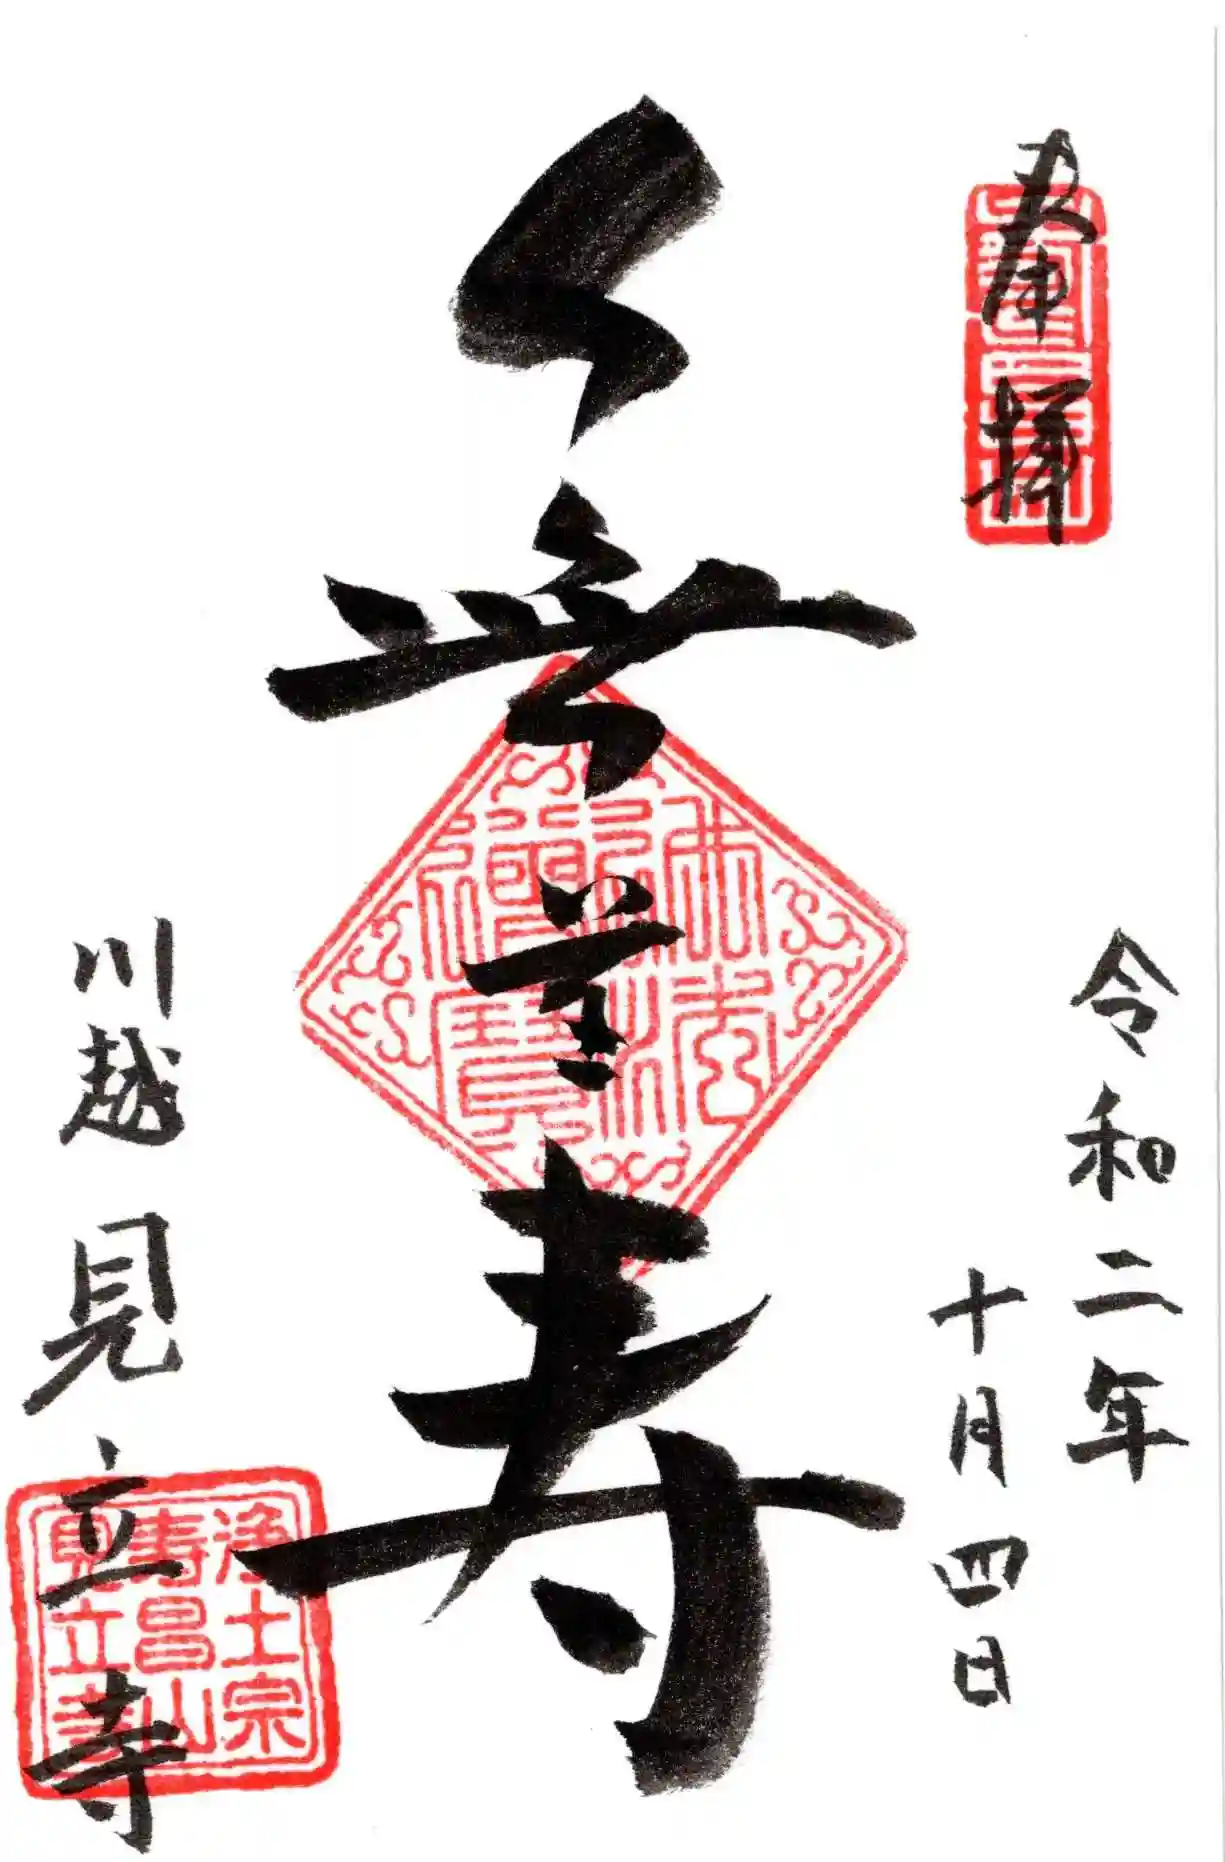 奉拝
令和二年
十月四日
無量寿
佛法僧寶
川越 見立寺
浄土宗
寿昌山
見立寺